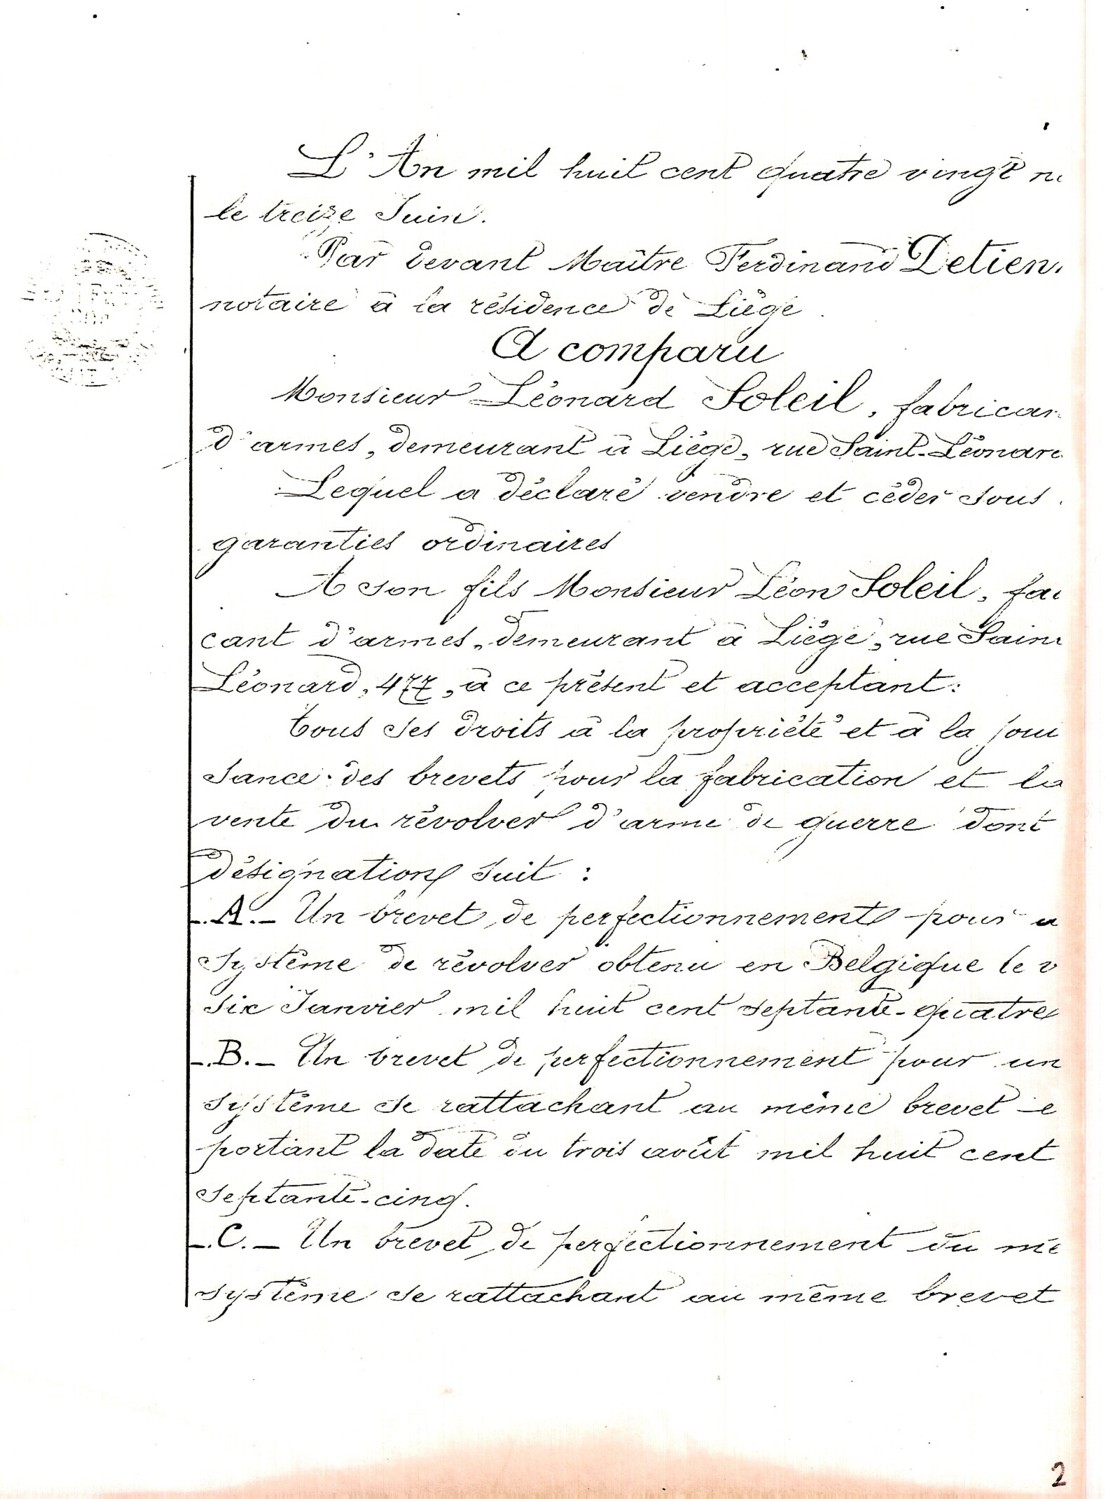 L'An mil huit cent quatre vingt n
le treize Juin.
Par devant Maître Ferdinand Detien
notaire à la résidence de Liége.
A comparu
Monsieur Léonard Soleil, fabrican
d'armes, demeurant à Liége, rue Saint-Léonar
Lequel a déclaré vendre et céder sous
garanties ordinaires
A son fils Monsieur Léon Soleil, fa
cant d'armes, demeurant à Liége, rue Sain
Léonard, 477, à ce présent et acceptant:
tous ses droits à la propriété et à la joui
sance des brevets pour la fabrication et la
vente du révolver d'arme de guerre dont
désignation suit :
A.- Un brevet de perfectionnement pour u
système de révolver obtenu en Belgique le v
six Janvier mil huit cent septante-quatre
B.- Un brevet de perfectionnement pour un
système se rattachant au même brevet e
portant la date du trois août mil huit cent
septante-cinq.
C.- Un brevet de perfectionnement du mê
système se rattachant au même brevet
2